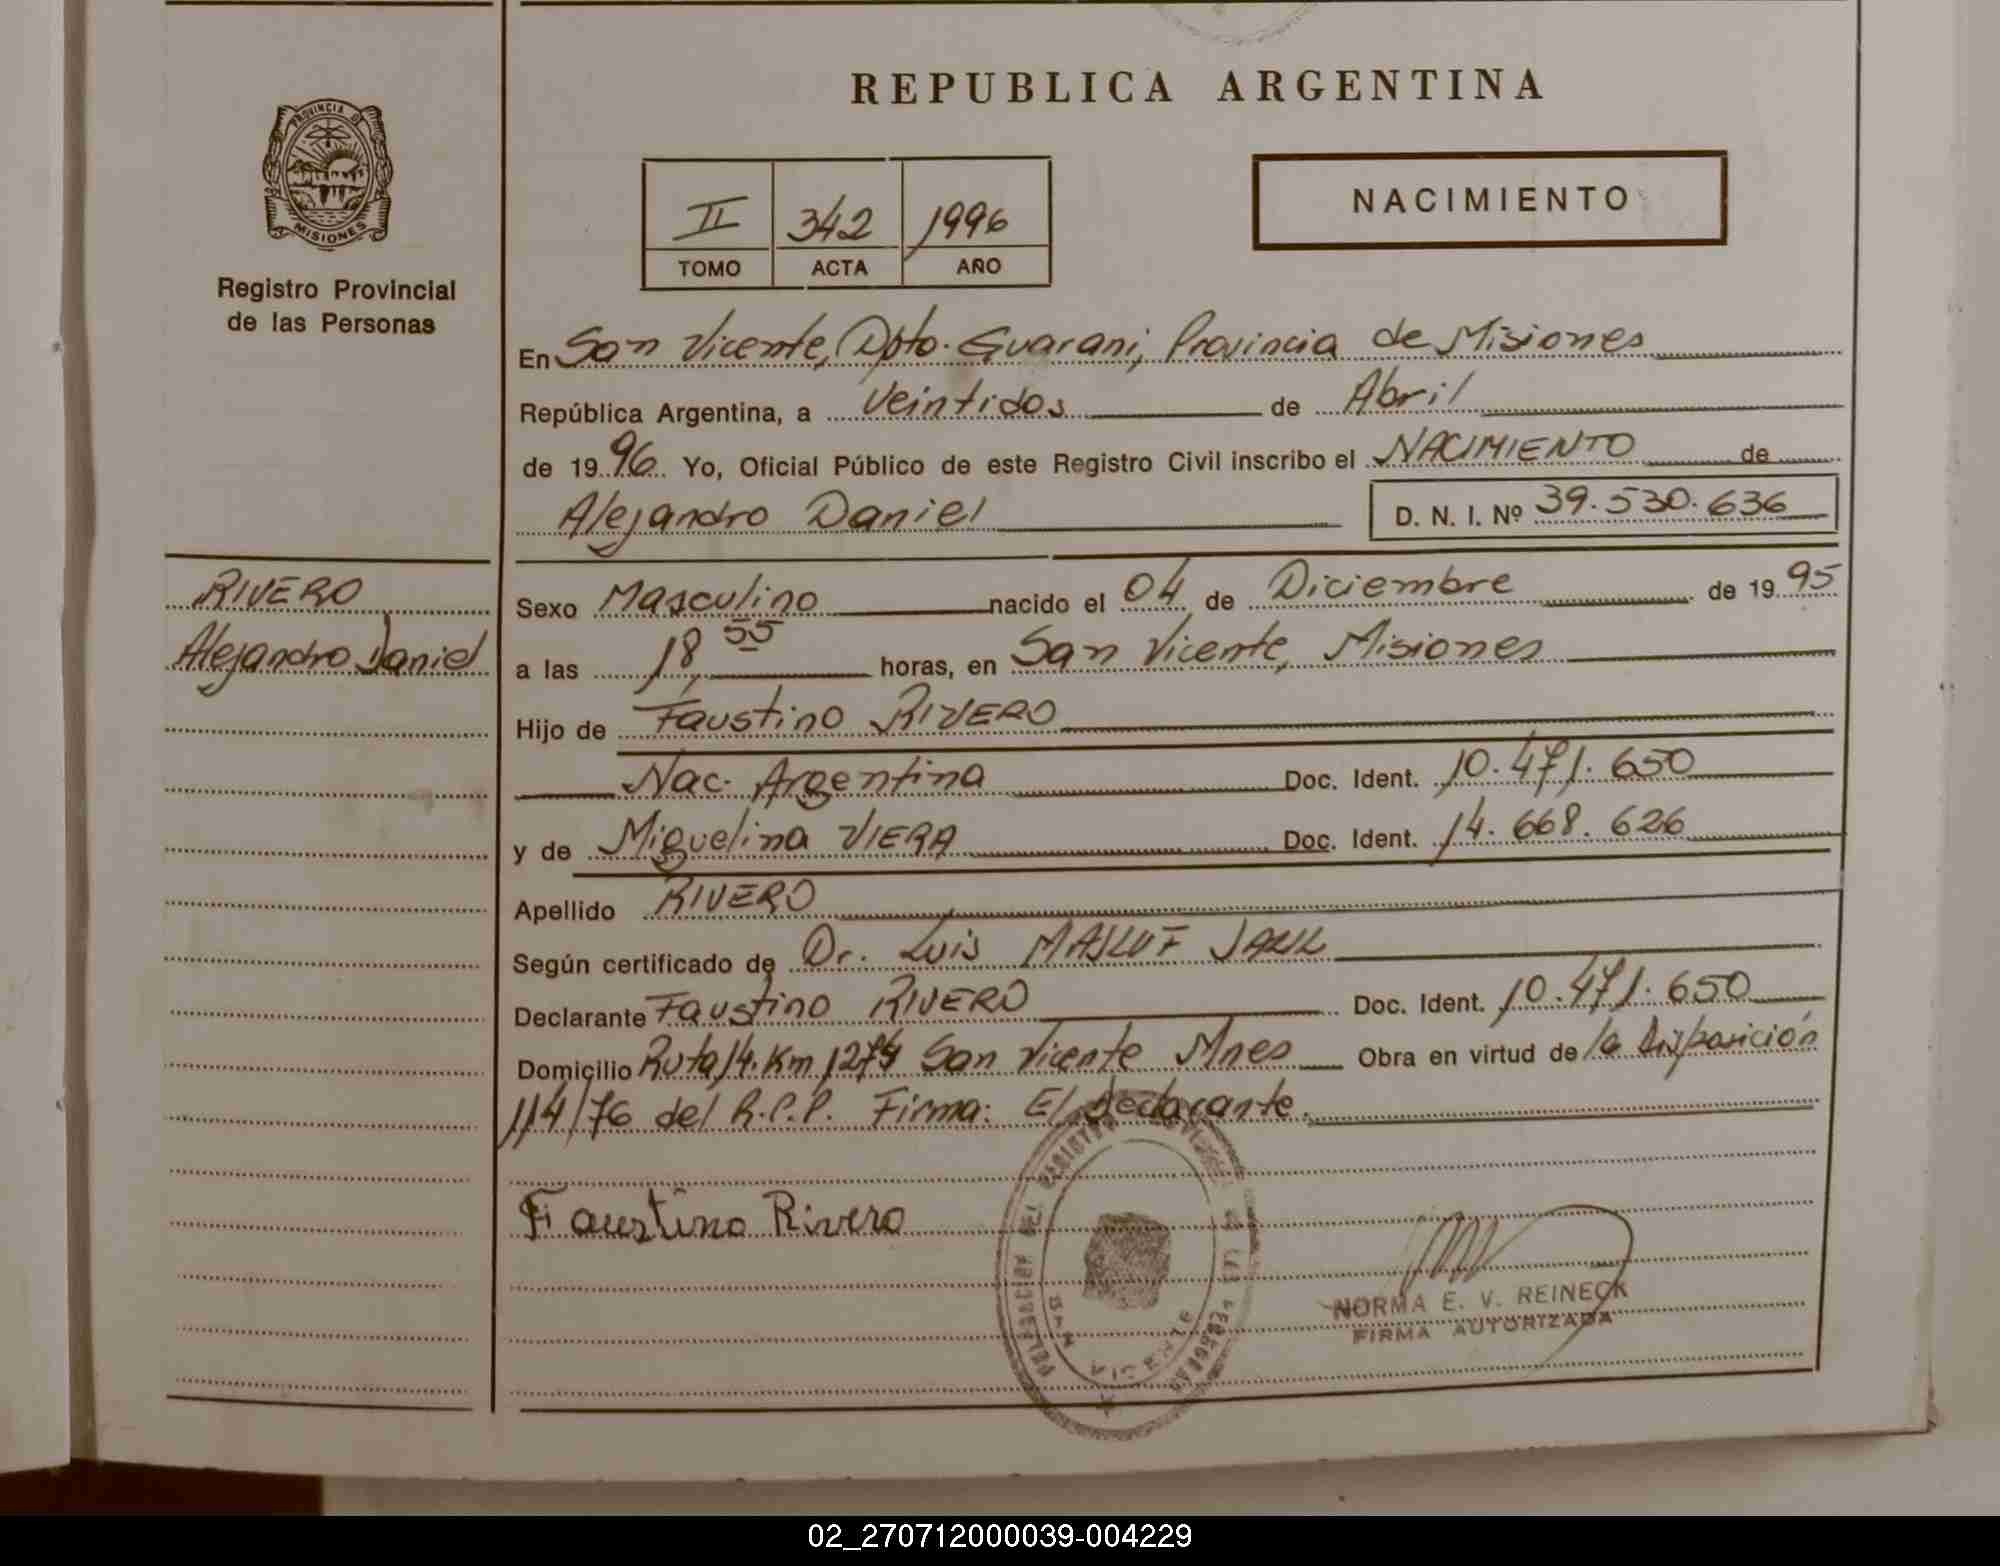 REPUBLICA ARGENTINA
PROVINCIA DE
MISIONES
Registro Provincial
de las Personas
II 342 1996
TOMO ACTA AÑO
NACIMIENTO
En San Vicente, Dpto. Guarani, Provincia de Misiones
República Argentina, a Veintidos de Abril
de 1996 Yo, Oficial Público de este Registro Civil inscribo el NACIMIENTO de
Alejandro Daniel D. N. I. Nº 39.530.636
RIVERO
Alejandro Daniel
Sexo Masculino nacido el 04 de Diciembre de 1995
a las 18,55 horas, en San Vicente, Misiones
Hijo de Faustino RIVERO
Nac. Argentina Doc. Ident. 10.471.650
y de Miguelina VIERA Doc. Ident. 14.668.626
Apellido RIVERO
Según certificado de Dr. Luis
Declarante Faustino RIVERO Doc. Ident. 10.471.650
Domicilio Ruta 14. Km 1274 San Vicente Mnes Obra en virtud de la Disposición
114/76 del R.P.P. Firma: El declarante.
Faustino Rivero
SAN VICENTE
NORMA E. V. REINECK
FIRMA AUTORIZADA
02_270712000039-004229